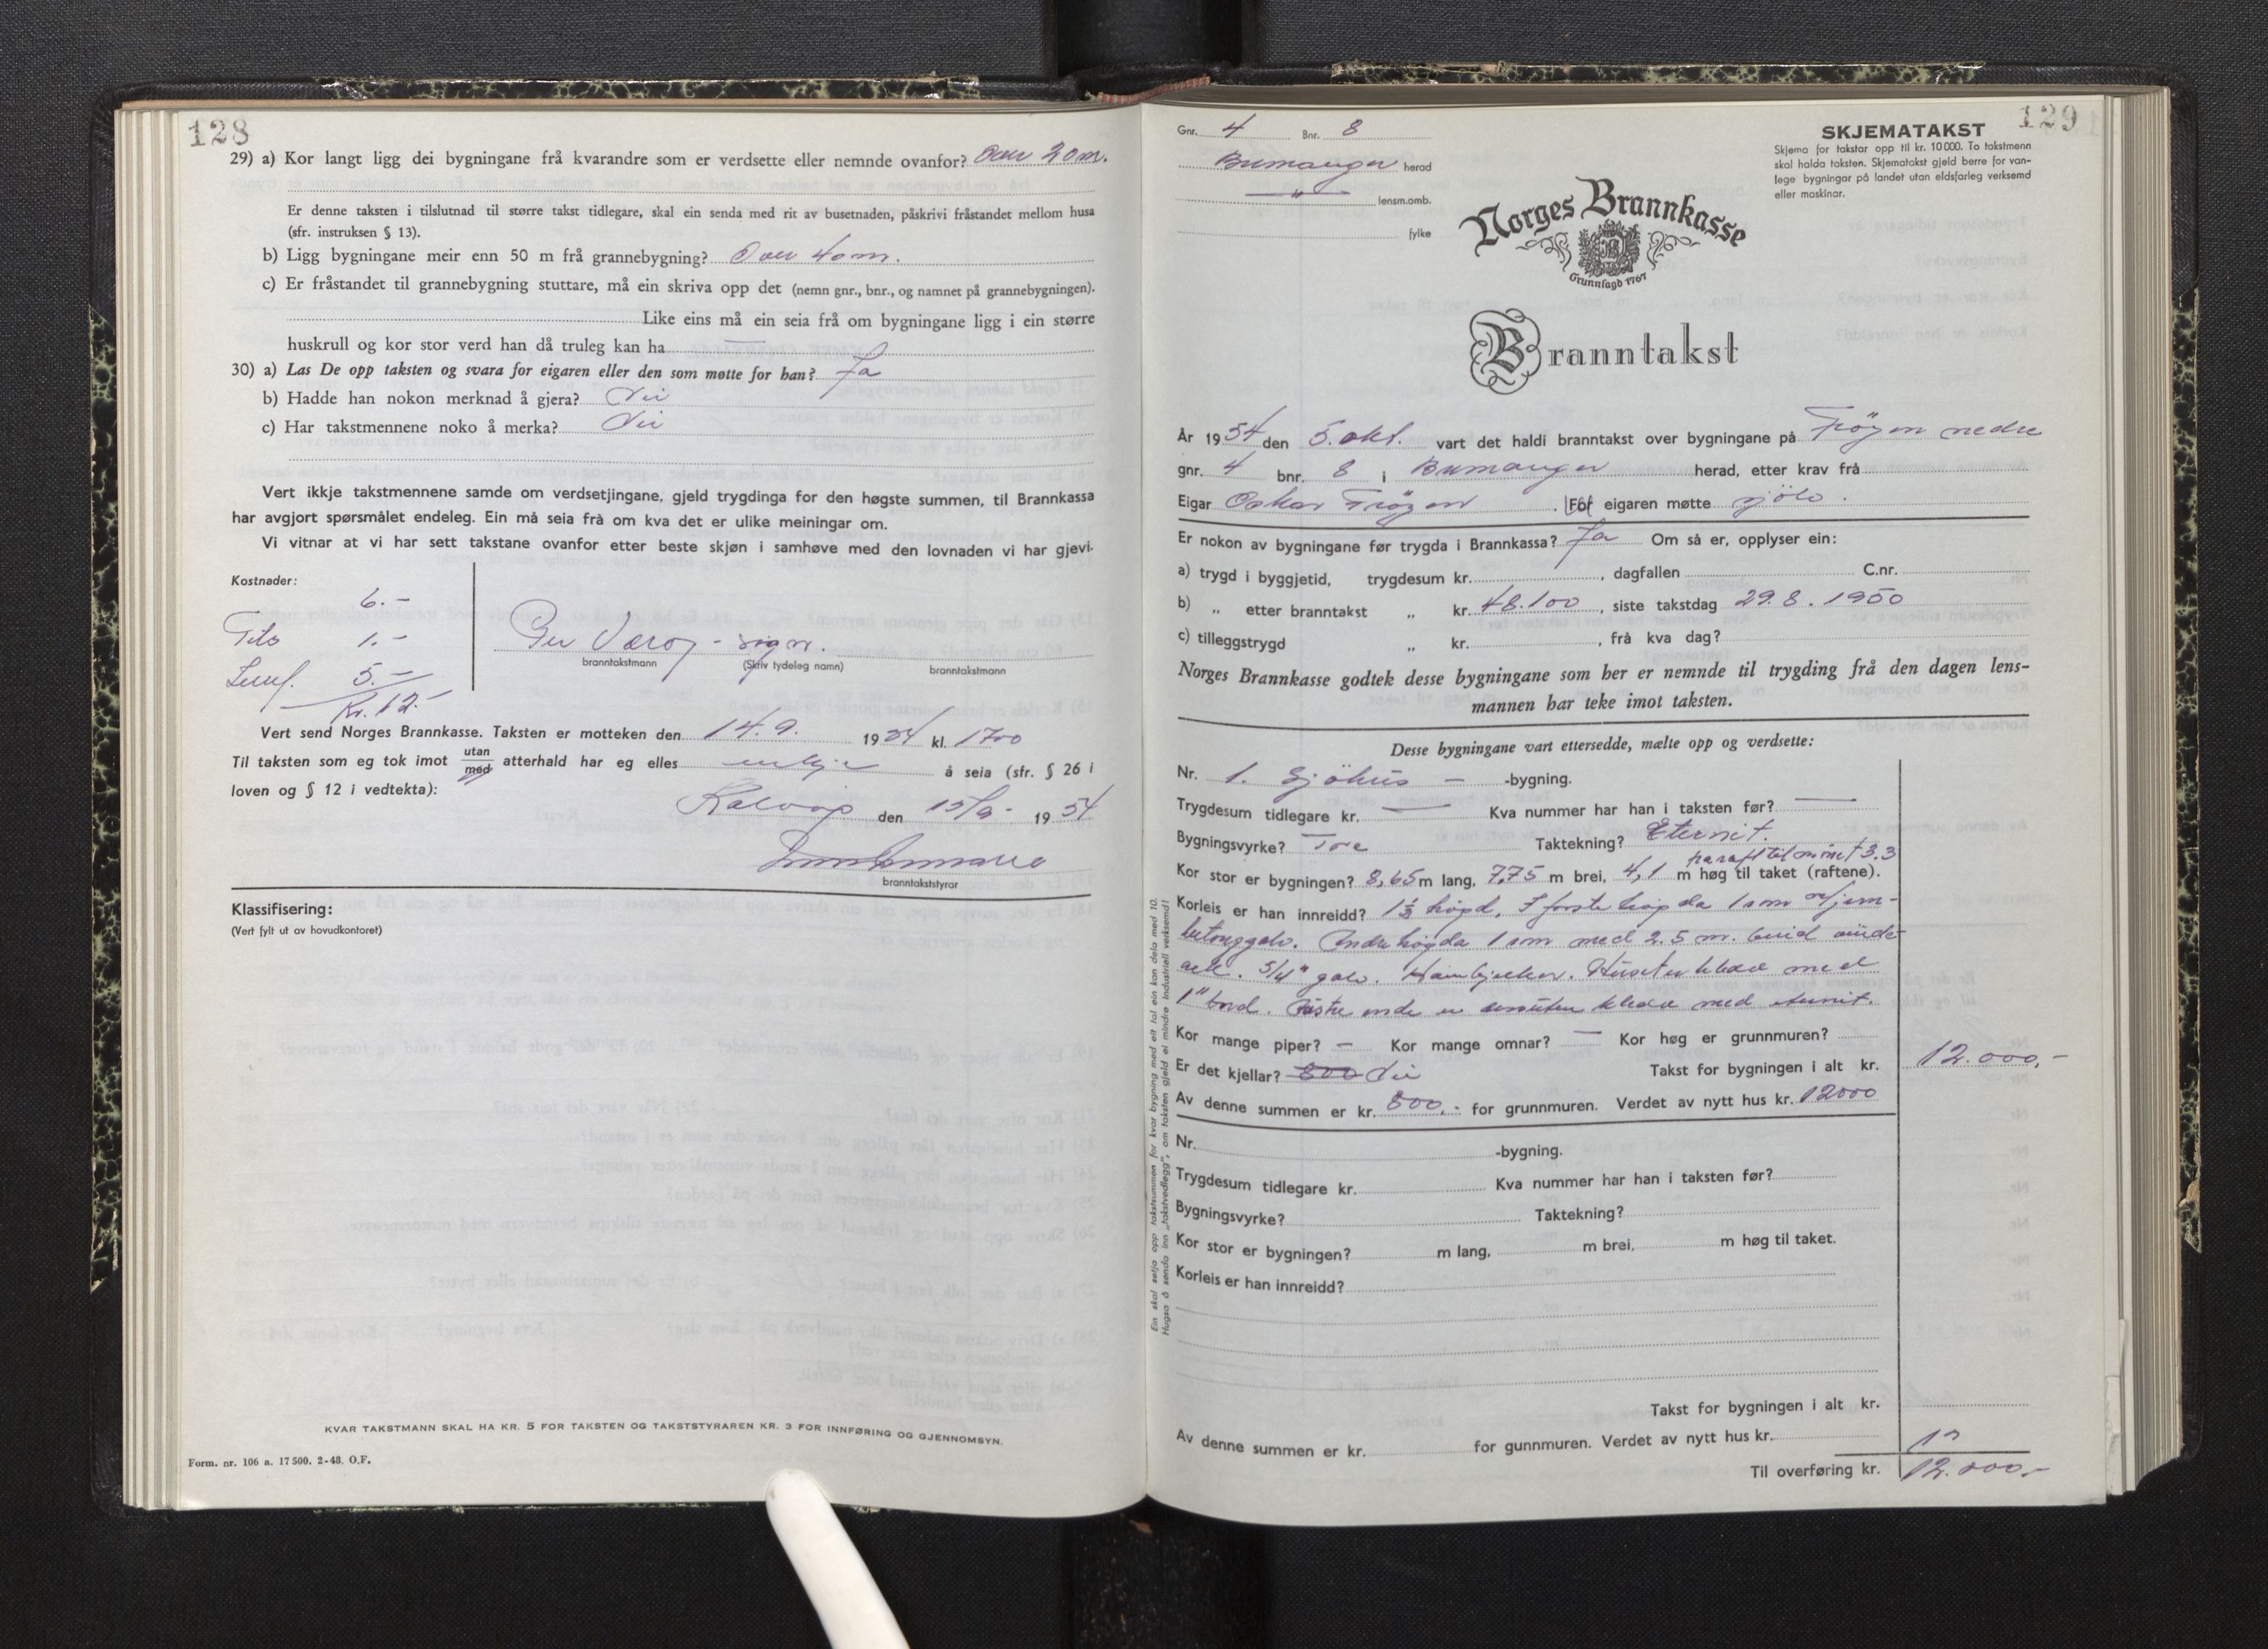 128
29) a) Kor langt ligg dei bygningane frå kvarandre som er verdsette eller nemnde ovanfor? Over 20 m.
Er denne taksten i tilslutnad til større takst tidlegare, skal ein senda med rit av busetnaden, påskrivi fråstandet mellom husa
(sfr. instruksen § 13).
b) Ligg bygningane meir enn 50 m frå grannebygning? Over 40 m.
c) Er fråstandet til grannebygning stuttare, må ein skriva opp det (nemn gnr., bnr., og namnet på grannebygningen).
Like eins må ein seia frå om bygningane ligg i ein større
huskrull og kor stor verd han då truleg kan ha —
30) a) Las De opp taksten og svara for eigaren eller den som møtte for han? Ja
b) Hadde han nokon merknad å gjera? Nei
c) Har takstmennene noko å merka? Nei
Vert ikkje takstmennene samde om verdsetjingane, gjeld trygdinga for den høgste summen, til Brannkassa
har avgjort spørsmålet endeleg. Ein må seia frå om kva det er ulike meiningar om.
Vi vitnar at vi har sett takstane ovanfor etter beste skjøn i samhøve med den lovnaden vi har gjevi.
Kostnader:
6.-
1.-
5.-
Kr. 12.-
Per - sign.
branntakstmann (Skriv tydeleg namn) branntakstmann
Vert send Norges Brannkasse. Taksten er motteken den 14.9. 1954 kl. 1700
Til taksten som eg tok imot utan/med atterhald har eg elles å seia (sfr. § 26 i
loven og § 12 i vedtekta):
Kalvåg den 15/9- 1954
branntakststyrar
Klassifisering:
(Vert fylt ut av hovudkontoret)
KVAR TAKSTMANN SKAL HA KR. 5 FOR TAKSTEN OG TAKSTSTYRAREN KR. 3 FOR INNFØRING OG GJENNOMSYN.
Form. nr. 106 a. 17500. 2-48. O.F.
129
Gnr. 4 Bnr. 8
Bremanger herad
—„— lensm.omb.
fylke
SKJEMATAKST
Skjema for takstar opp til kr. 10000. To takstmenn
skal halda taksten. Skjematakst gjeld berre for van-
lege bygningar på landet utan eldsfarleg verksemd
eller maskinar.
Norges Brannkasse
Grunnlagd 1767
Branntakst
År 1954 den 5. okt. vart det haldi branntakst over bygningane på Fröyen nedre
gnr. 4 bnr. 8 i Bremanger herad, etter krav frå
Eigar Oskar Fröyen. For eigaren møtte sjölv.
Er nokon av bygningane før trygda i Brannkassa? Ja Om så er, opplyser ein:
a) trygd i byggjetid, trygdesum kr. , dagfallen C.nr.
b) „ etter branntakst „ kr. 48.100, siste takstdag 29.8.1950
c) tilleggstrygd „ kr. , frå kva dag?
Norges Brannkasse godtek desse bygningane som her er nemnde til trygding frå den dagen lens-
mannen har teke imot taksten.
Desse bygningane vart ettersedde, mælte opp og verdsette:
Nr. 1. Sjöhus — -bygning.
Trygdesum tidlegare kr. — Kva nummer har han i taksten før? —
Bygningsvyrke? Tre Taktekning? Eternit.
fra raft til möne 3.3
Kor stor er bygningen? 8,65 m lang, 7,75 m brei, 4,1 m høg til taket (raftene).
Korleis er han innreidd? 1½ högd. I förste högda 1 rom m/jern-
betonggolv. Andre högda 1 rom med 2.5 m. breid
ark. 5/4" golv. Huset er kledd med
1" bord. Östre ende er kledd med eternit.
Kor mange piper? — Kor mange omnar? — Kor høg er grunnmuren?
Er det kjellar? 800 Nei Takst for bygningen i alt kr. 12.000,-
Av denne summen er kr. 800,- for grunnmuren. Verdet av nytt hus kr. 12000
Nr. -bygning.
Trygdesum tidlegare kr. Kva nummer har han i taksten før?
Bygningsvyrke? Taktekning?
Kor stor er bygningen? m lang, m brei, m høg til taket.
Korleis er han innreidd?
Takst for bygningen i alt kr.
Av denne summen er kr. for gunnmuren. Verdet av nytt hus kr.
Til overføring kr. 12.000,-
Ein skal setja opp takstsummen for kvar bygning med eit tal ein kan dela med 10.
Hugsa å senda inn „takstvedlegg", om taksten gjeld ei mindre industriell verksemd!